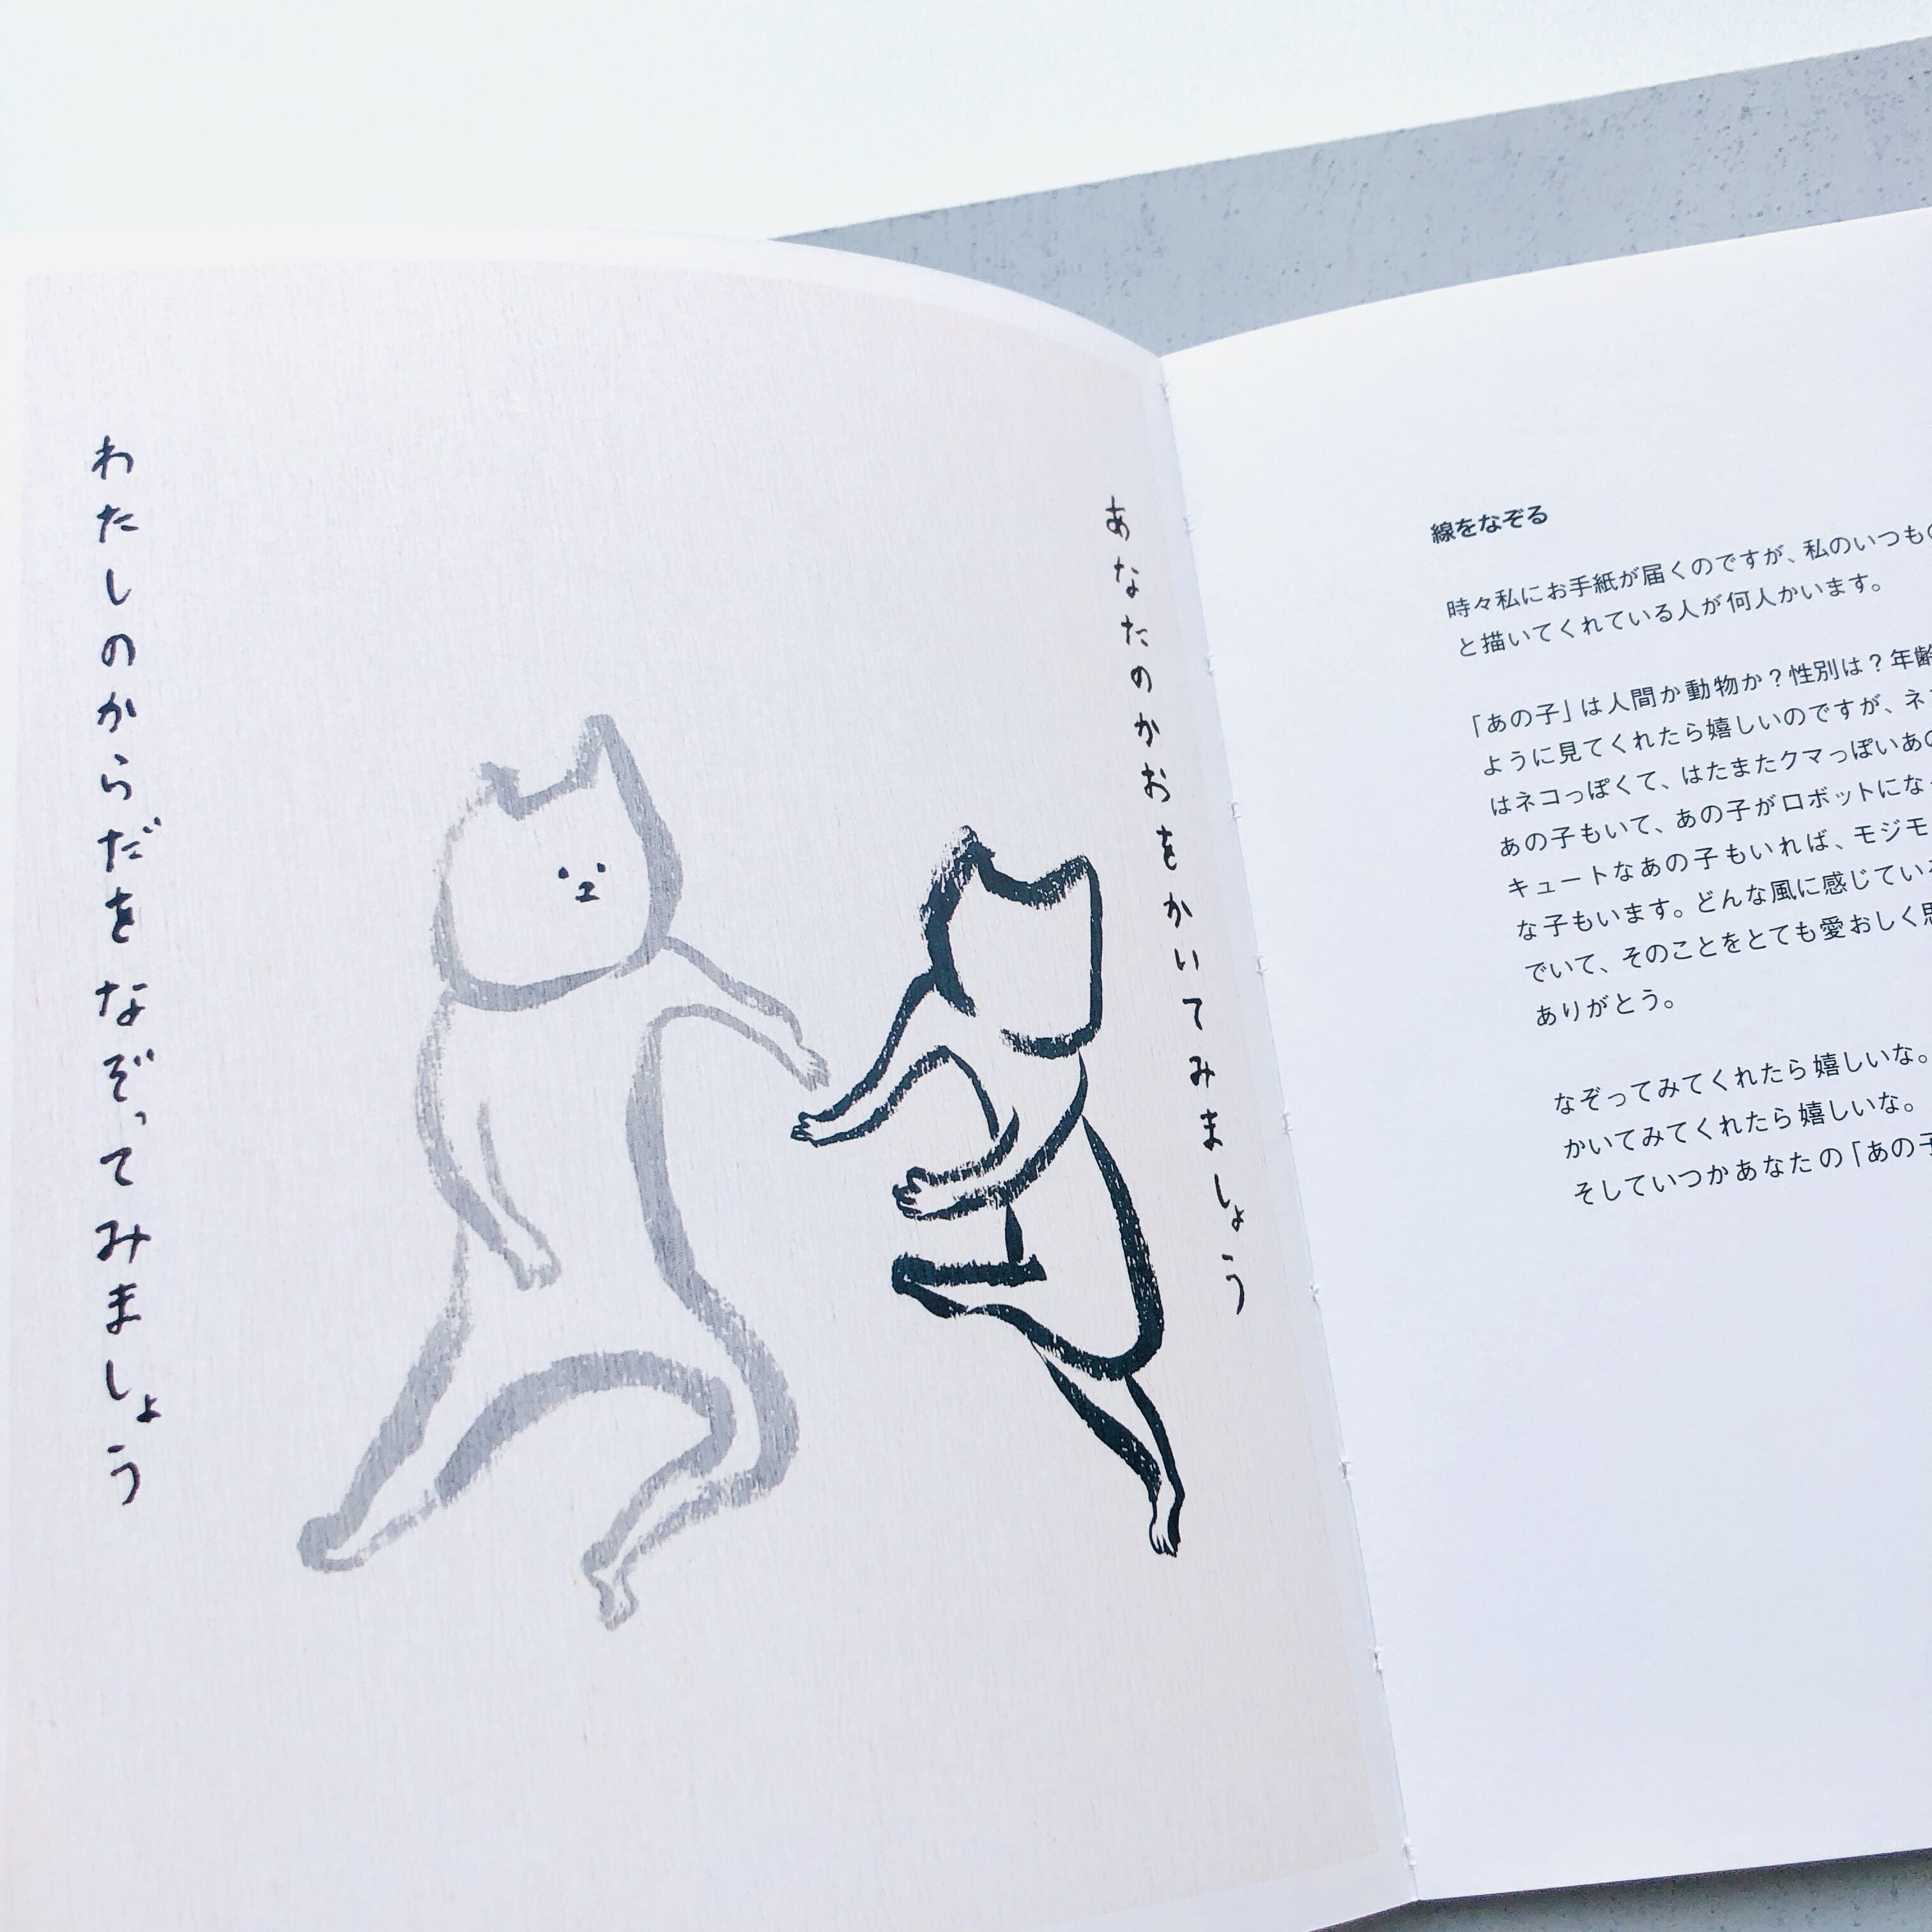 あなたのかおをかいてみましょう
わたしのからだをなぞってみましょう
線をなぞる
時々私にお手紙が届くのですが、私のいつもの
と描いてくれている人が何人かいます。
「あの子」は人間か動物か?性別は?年齢
ように見てくれたら嬉しいのですが、ネ
はネコっぽくて、はたまたクマっぽいあの
あの子もいて、あの子がロボットにな
キュートなあの子もいれば、モジモ
な子もいます。どんな風に感じている
でいて、そのことをとても愛おしく思
ありがとう。
なぞってみてくれたら嬉しいな。
かいてみてくれたら嬉しいな。
そしていつかあなたの「あの子